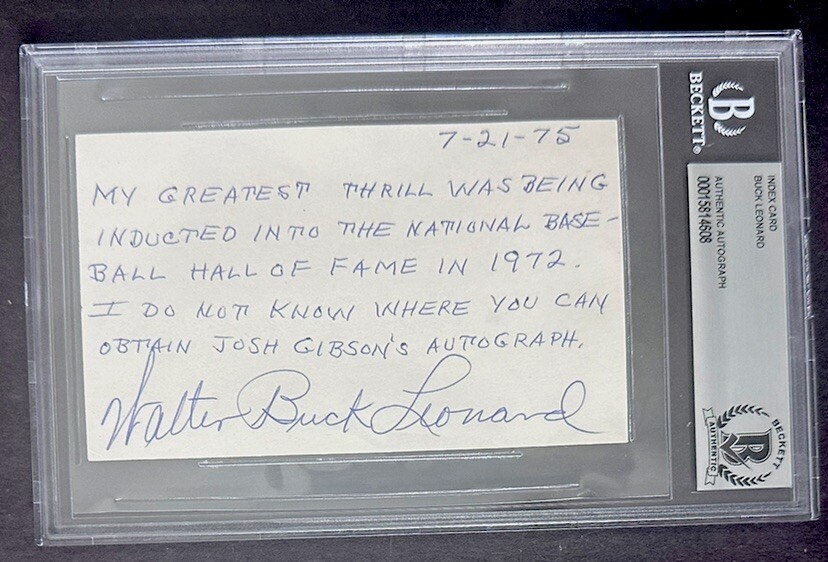 7-21-75
MY GREATEST THRILL WAS BEING
INDUCTED INTO THE NATIONAL BASE-
BALL HALL OF FAME IN 1972.
I DO NOT KNOW WHERE YOU CAN
OBTAIN JOSH GIBSON'S AUTOGRAPH.
Walter Buck Leonard
B
BECKETT
INDEX CARD
BUCK LEONARD
AUTHENTIC AUTOGRAPH
00015814608
BECKETT
AUTHENTIC